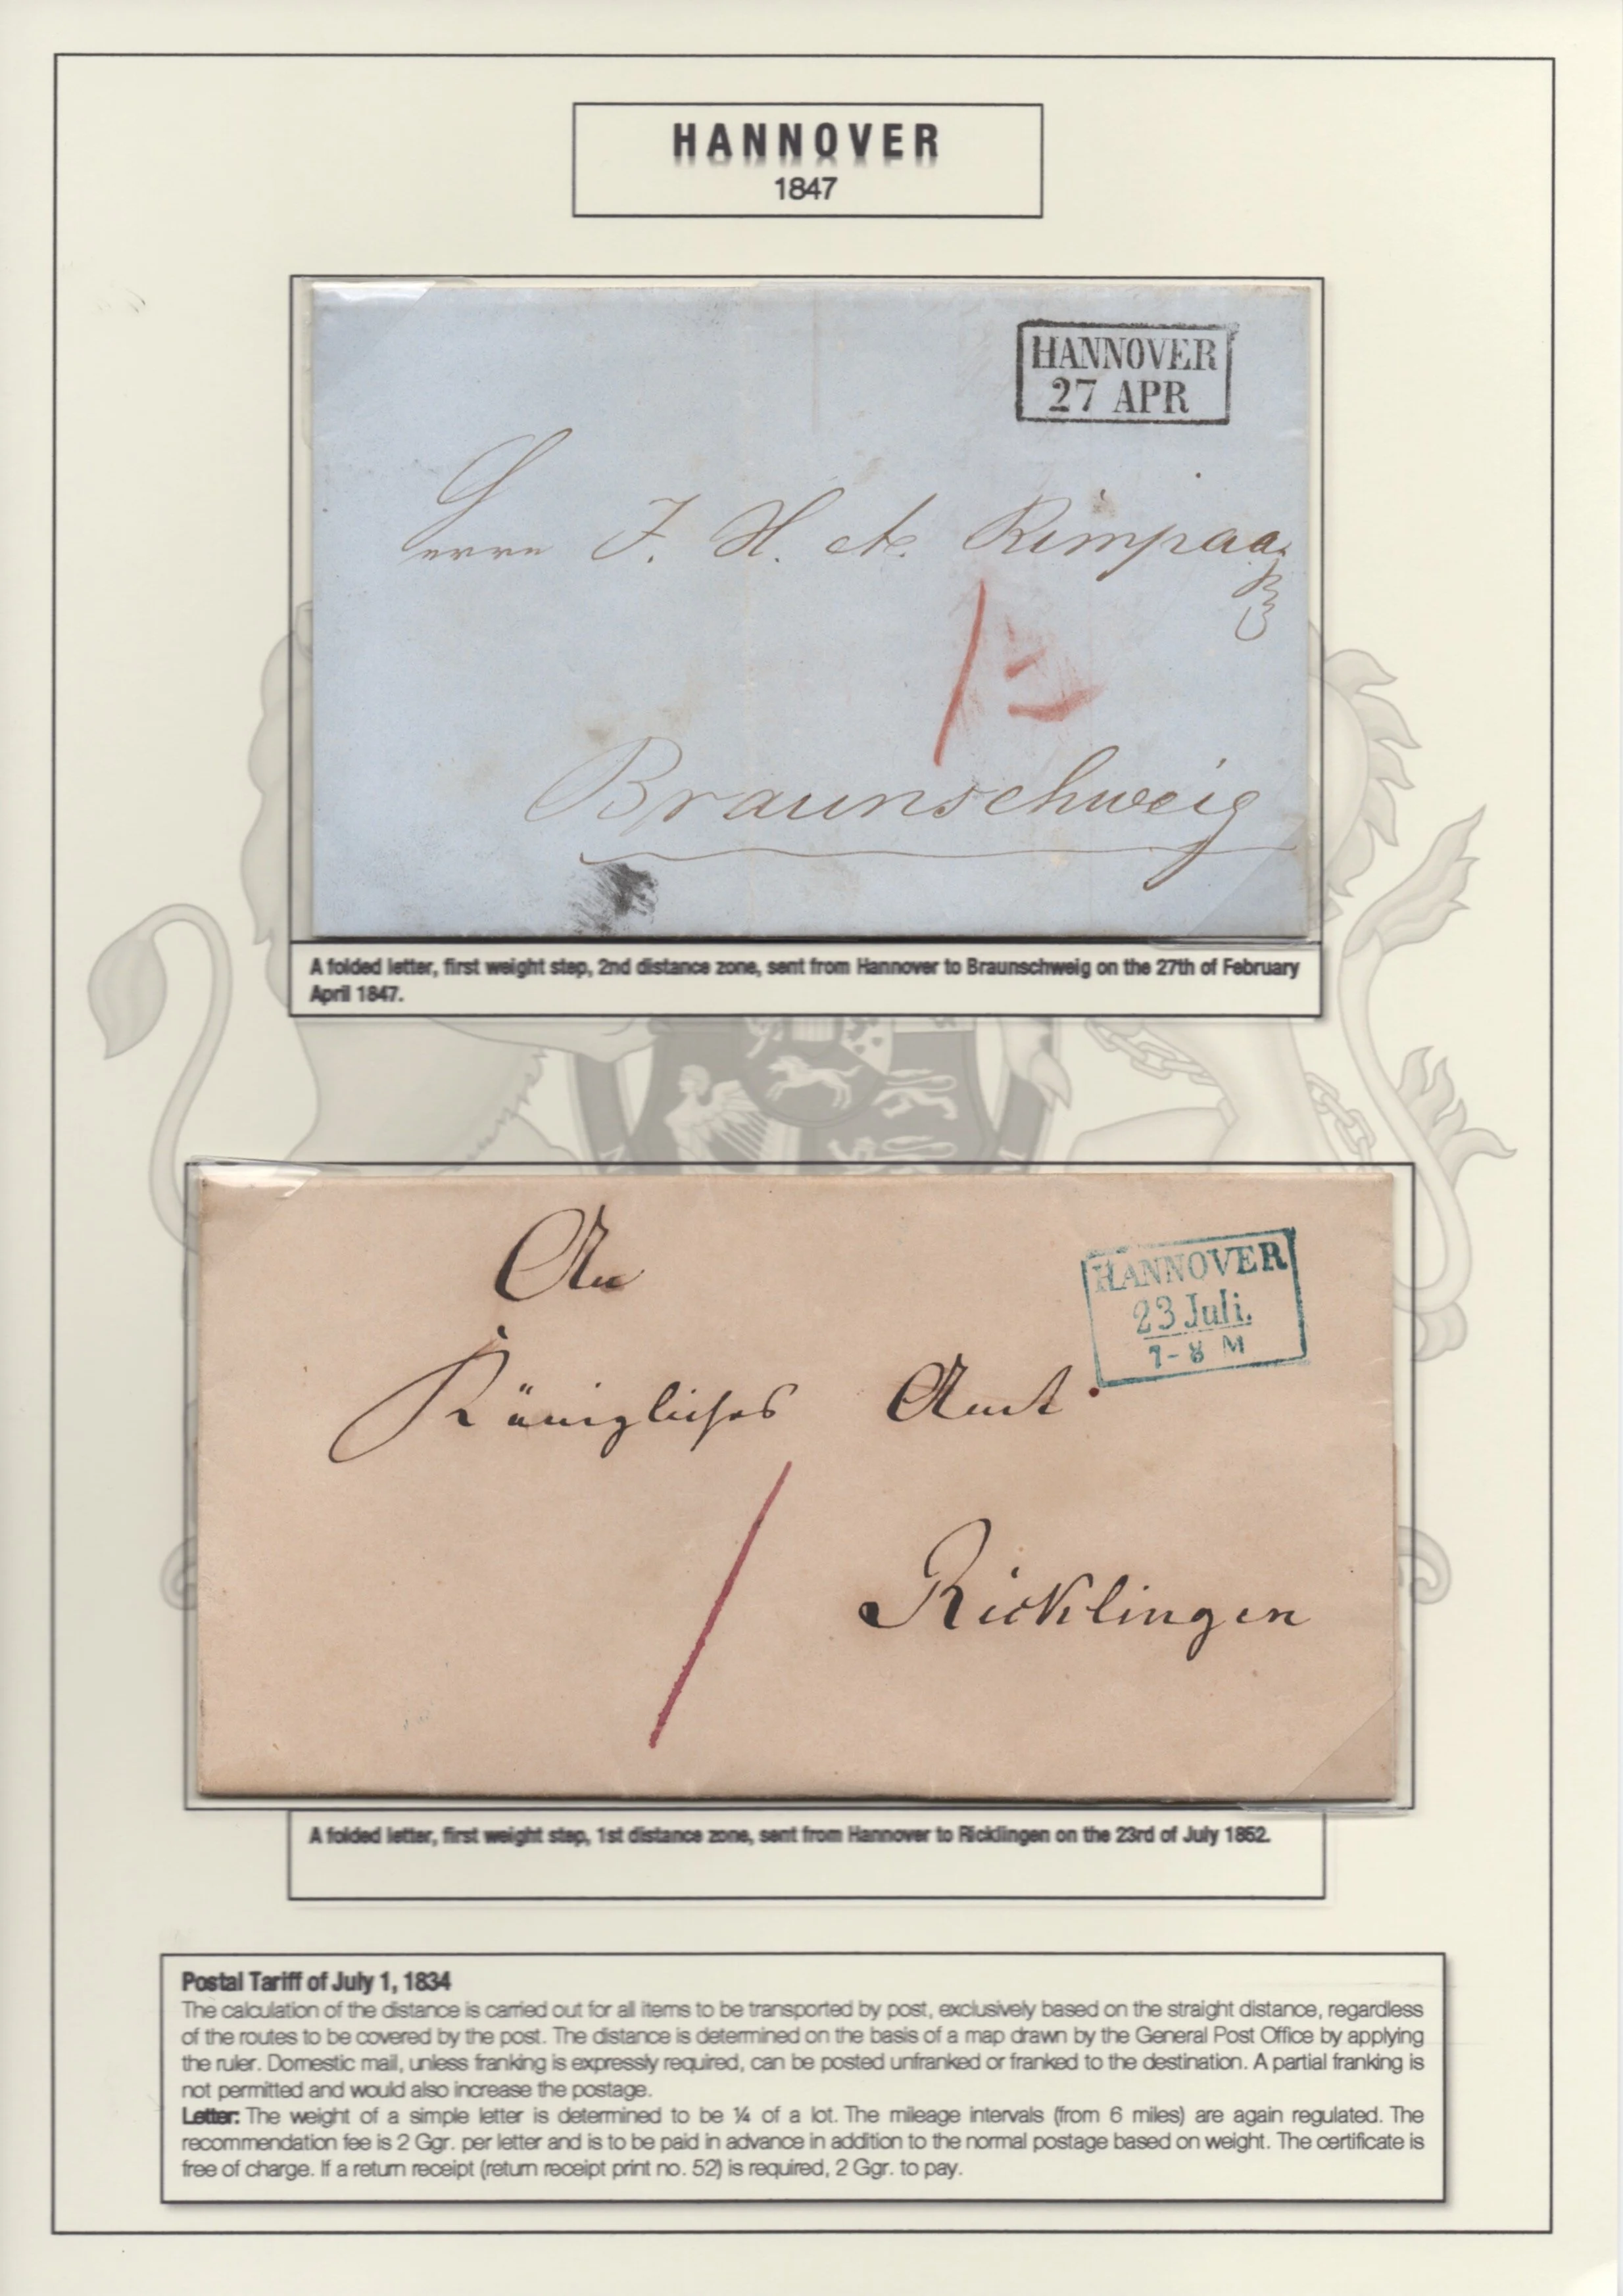 HANNOVER
1847
HANNOVER
27 APR
Herrn J. H. A. Rimpau
Braunschweig
A folded letter, first weight step, 2nd distance zone, sent from Hannover to Braunschweig on the 27th of February
April 1847.
An
HANNOVER
23 Juli.
7-8 M
Königliches Amt
Ricklingen
A folded letter, first weight step, 1st distance zone, sent from Hannover to Ricklingen on the 23rd of July 1852.
Postal Tariff of July 1, 1834
The calculation of the distance is carried out for all items to be transported by post, exclusively based on the straight distance, regardless
of the routes to be covered by the post. The distance is determined on the basis of a map drawn by the General Post Office by applying
the ruler. Domestic mail, unless franking is expressly required, can be posted unfranked or franked to the destination. A partial franking is
not permitted and would also increase the postage.
Letter: The weight of a simple letter is determined to be ¼ of a lot. The mileage intervals (from 6 miles) are again regulated. The
recommendation fee is 2 Ggr. per letter and is to be paid in advance in addition to the normal postage based on weight. The certificate is
free of charge. If a return receipt (return receipt print no. 52) is required, 2 Ggr. to pay.